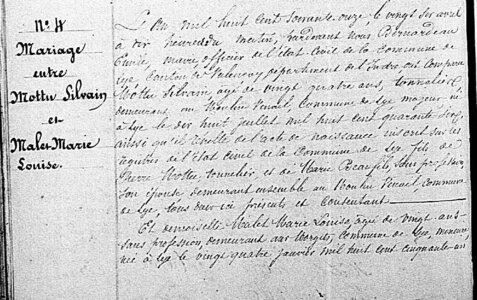 N° 4
Mariage
entre
Mottu Silvain
et
Malet Marie
Louise.
L'An mil huit cent soixante onze le vingt six avril
à dix heures du matin, pardevant Nous Bernardeau
maire officier de l'état civil de la Commune de
Lye, Canton de Valençay département de l'Indre est Comparu
Mottu Silvain, âgé de vingt quatre ans, tonnelier
demeurant au Moulin commune de Lye majeur, né
à Lye le dix huit juillet mil huit cent quarante six
ainsi qu'il résulte de l'acte de naissance inscrit sur les
registres de l'état civil de la Commune de Lye fils de
Pierre Mottu, tonnelier et de Marie Beaufils, sans profession
son épouse demeurant ensemble au Moulin Commune
de Lye, tous deux ici présents et Consentant
Et demoiselle Malet Marie Louise, âgée de vingt ans
sans profession, demeurant aux commune de Lye, mineure
née à Lye le vingt quatre janvier mil huit cent cinquante un